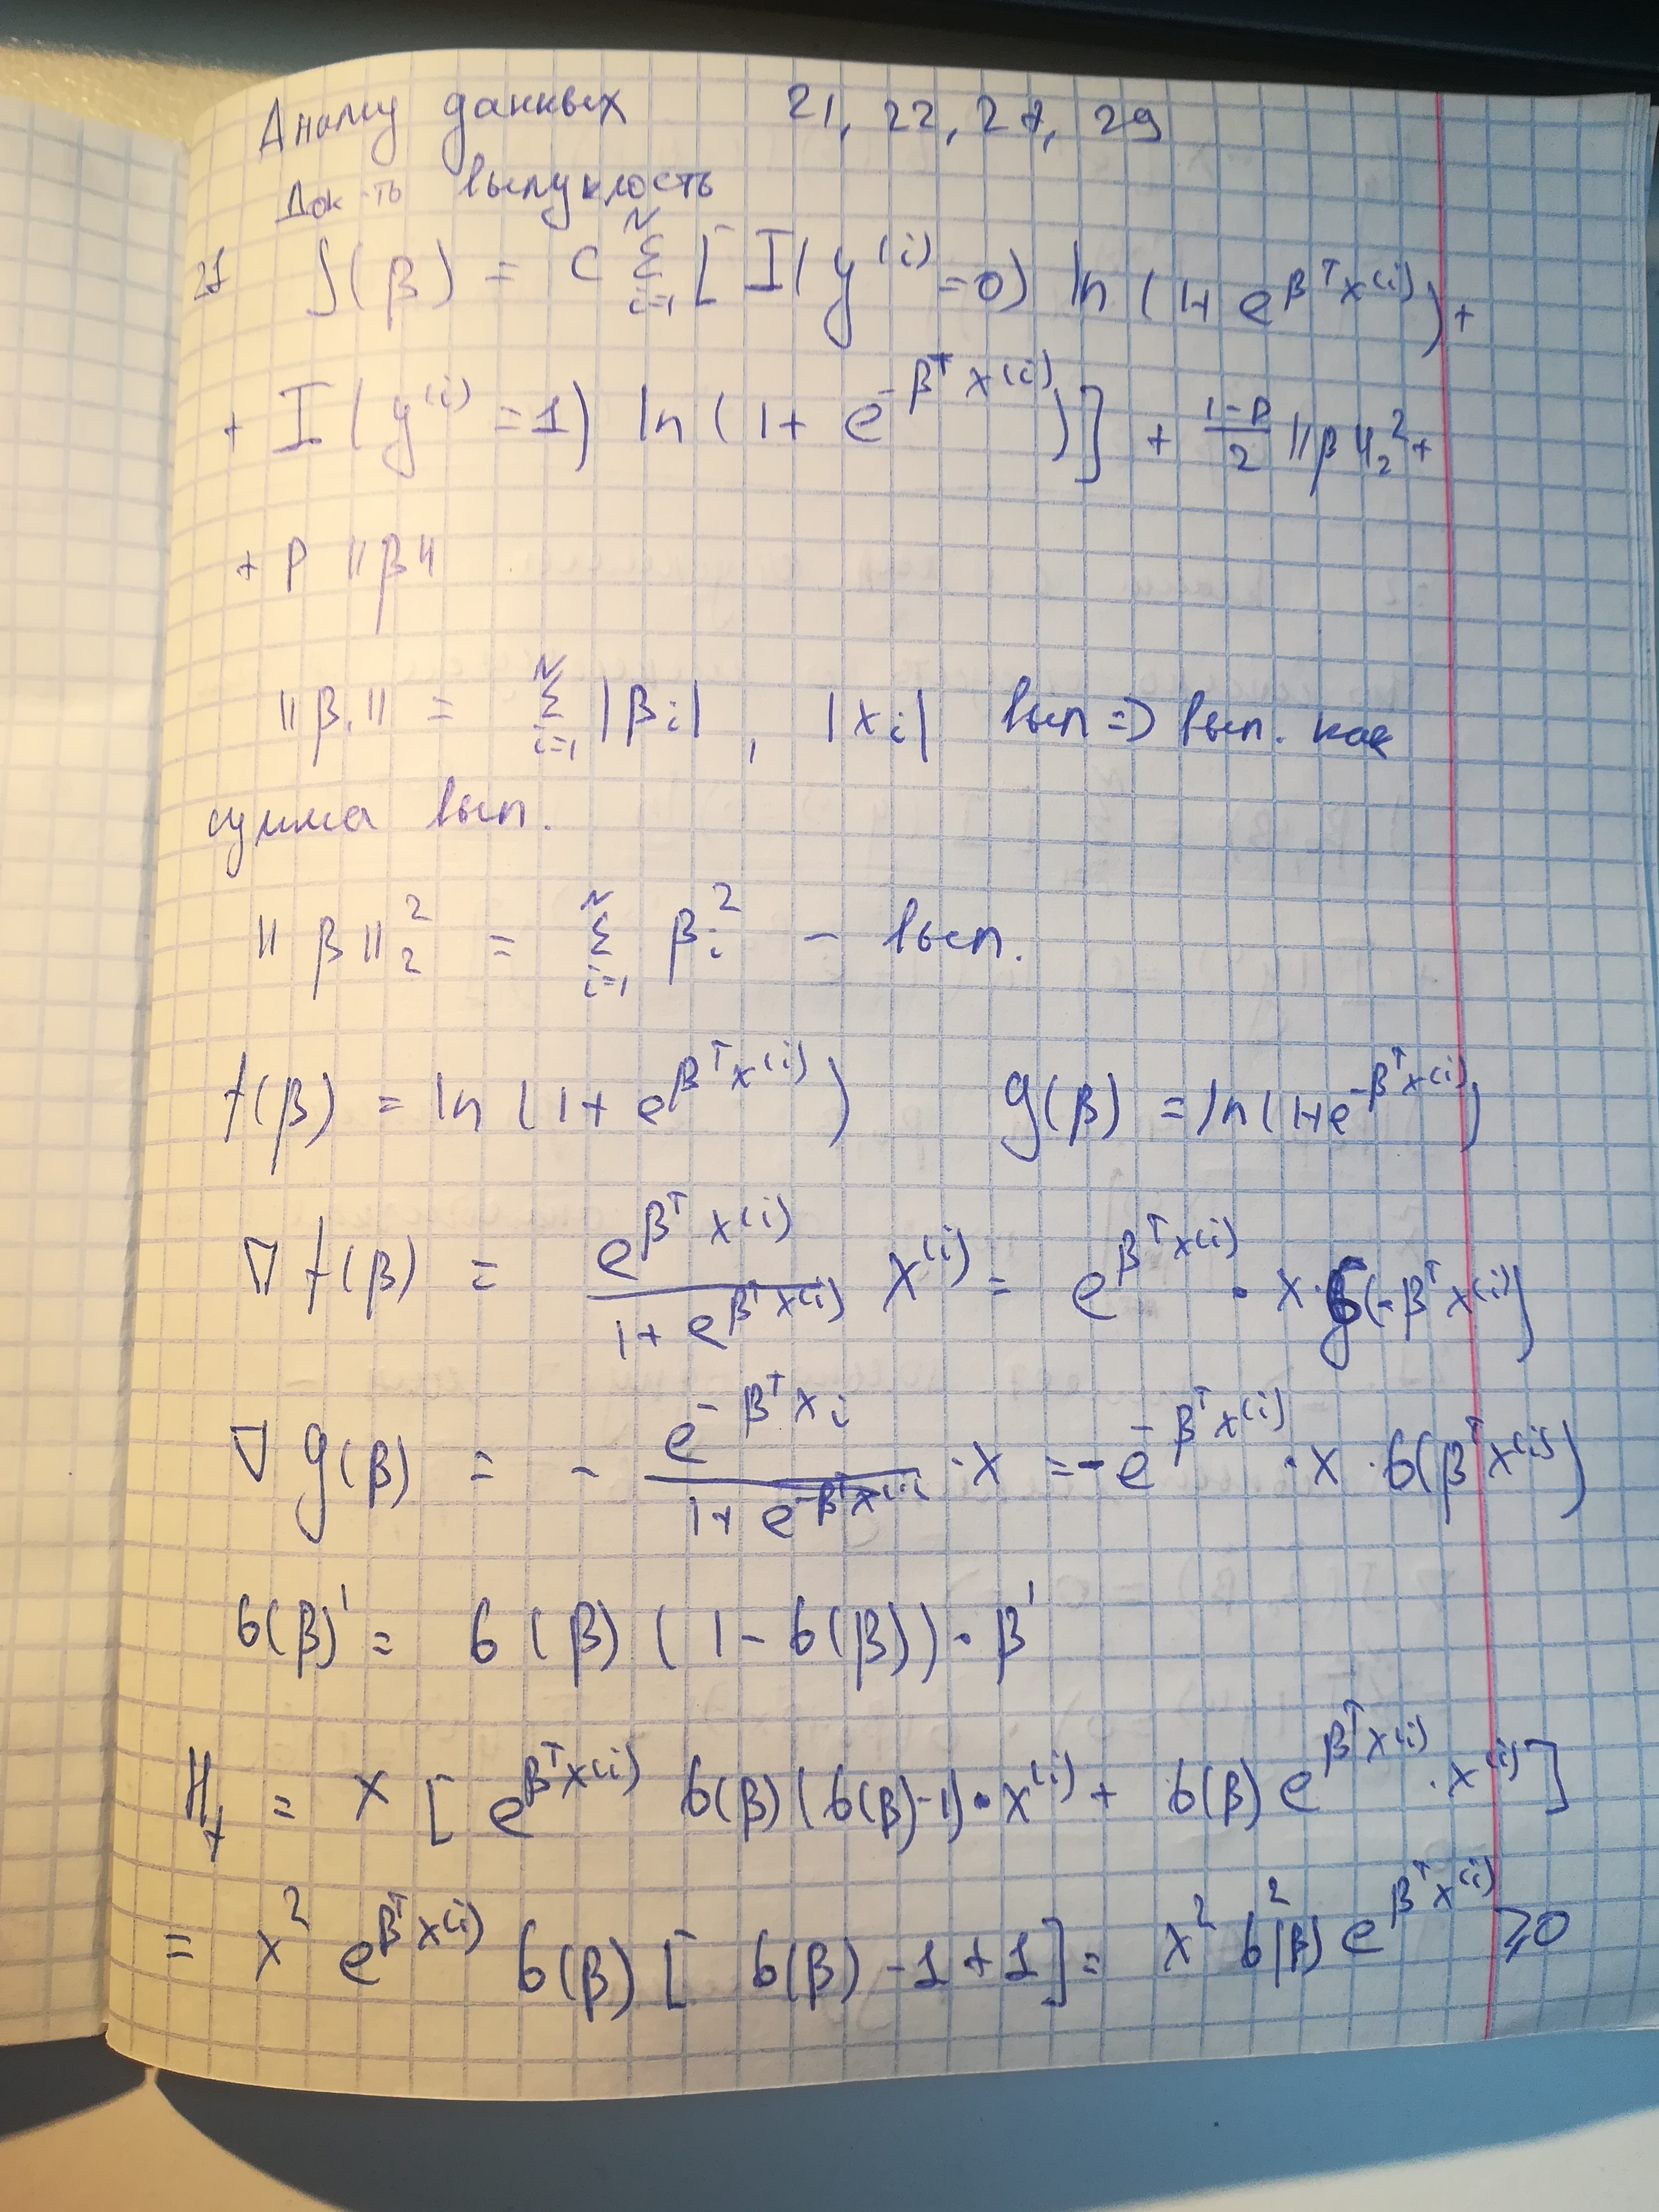 Анализ данных 21, 22, 27, 29
Док-ть выпуклость
21 J(β) = C Σ_{i=1}^{N} [ I(y^{(i)} = 0) ln(1+ e^{β^T x^{(i)}}) +
+ I(y^{(i)} = 1) ln(1+ e^{-β^T x^{(i)}}) ] + \frac{1-ρ}{2} ||β||_2^2 +
+ ρ ||β||
||β|| = Σ_{i=1}^{N} |β_i| , |x_i| вып => вып. как
сумма вып.
||β||_2^2 = Σ_{i=1}^{N} β_i^2 - вып.
f(β) = ln(1+ e^{β^T x^{(i)}}) g(β) = ln(1+e^{-β^T x^{(i)}})
∇f(β) = \frac{e^{β^T x^{(i)}}}{1+ e^{β^T x^{(i)}}} x^{(i)} = e^{β^T x^{(i)}} · x · б(-β^T x^{(i)})
∇g(β) = - \frac{e^{-β^T x_i}}{1+ e^{-β^T x^{(i)}}} · x = -e^{-β^T x^{(i)}} · x · б(β^T x^{(i)})
б(β)' = б(β)(1 - б(β)) · β'
H_f = x [ e^{β^T x^{(i)}} б(β)(б(β)-1) · x^{(i)} + б(β) e^{β^T x^{(i)}} · x^{(i)} ]
= x^2 e^{β^T x^{(i)}} б(β) [ б(β) -1+1] = x^2 б^2(β) e^{β^T x^{(i)}} ⩾0